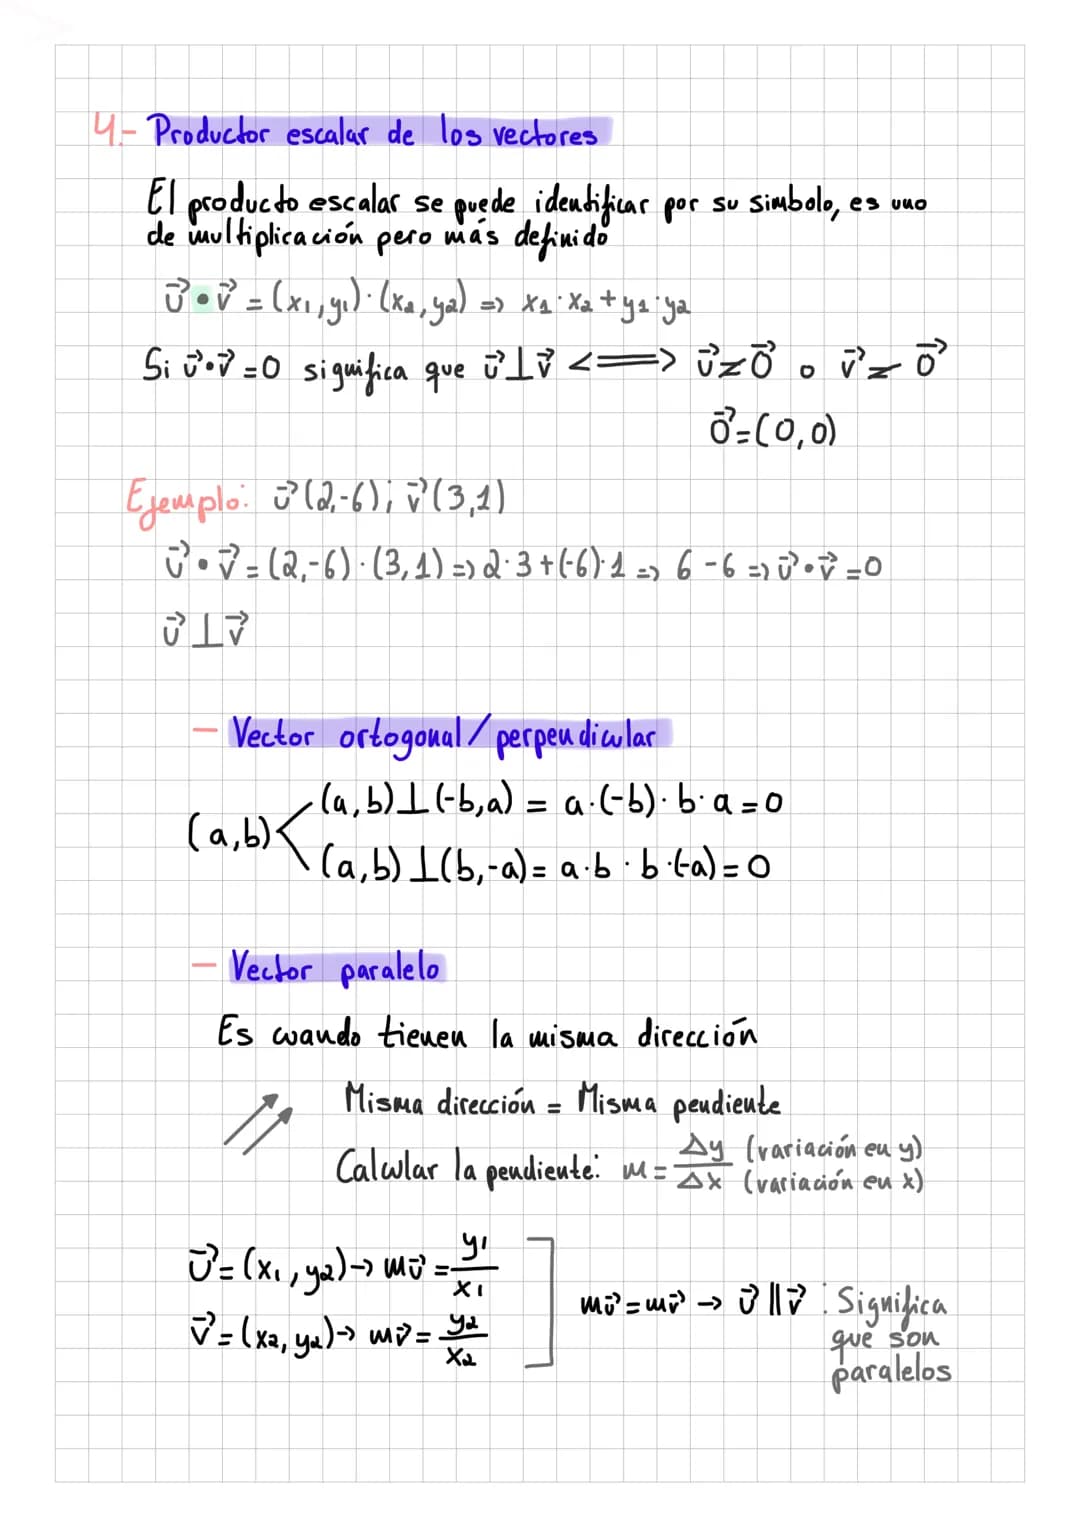 4.- Productor escalar de los vectores
El producto escalar se puede identificar por su simbolo, es uno
de multiplicación pero más definido
u⃗ • v⃗ = (x₁, y₁) · (x₂, y₂) => x₁ · x₂ + y₁ · y₂
Si u⃗ • v⃗ = 0 significa que u⃗ ⊥ v⃗ <=> u⃗ ≠ 0⃗ o v⃗ ≠ 0⃗
0⃗ = (0,0)
Ejemplo: u⃗ (2,-6); v⃗ (3,1)
u⃗ • v⃗ = (2,-6) · (3,1) => 2·3 + (-6)·1 => 6 - 6 => u⃗ • v⃗ = 0
u⃗ ⊥ v⃗
- Vector ortogonal / perpendicular
(a,b) ⊥ (-b,a) = a·(-b) · b·a = 0
(a,b)
(a,b) ⊥ (b,-a) = a·b · b·(-a) = 0
- Vector paralelo
Es cuando tienen la misma dirección
Misma dirección = Misma pendiente
Calcular la pendiente: m = Δy/Δx (variación en y) (variación en x)
u⃗ = (x₁, y₂) → mu⃗ = y₁/x₁
v⃗ = (x₂, y₂) → mv⃗ = y₂/x₂
mu⃗ = mv⃗ → u⃗ ∥ v⃗ : Significa
que son
paralelos